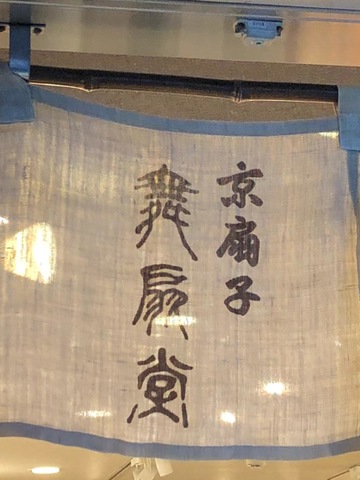 京扇子
舞扇堂